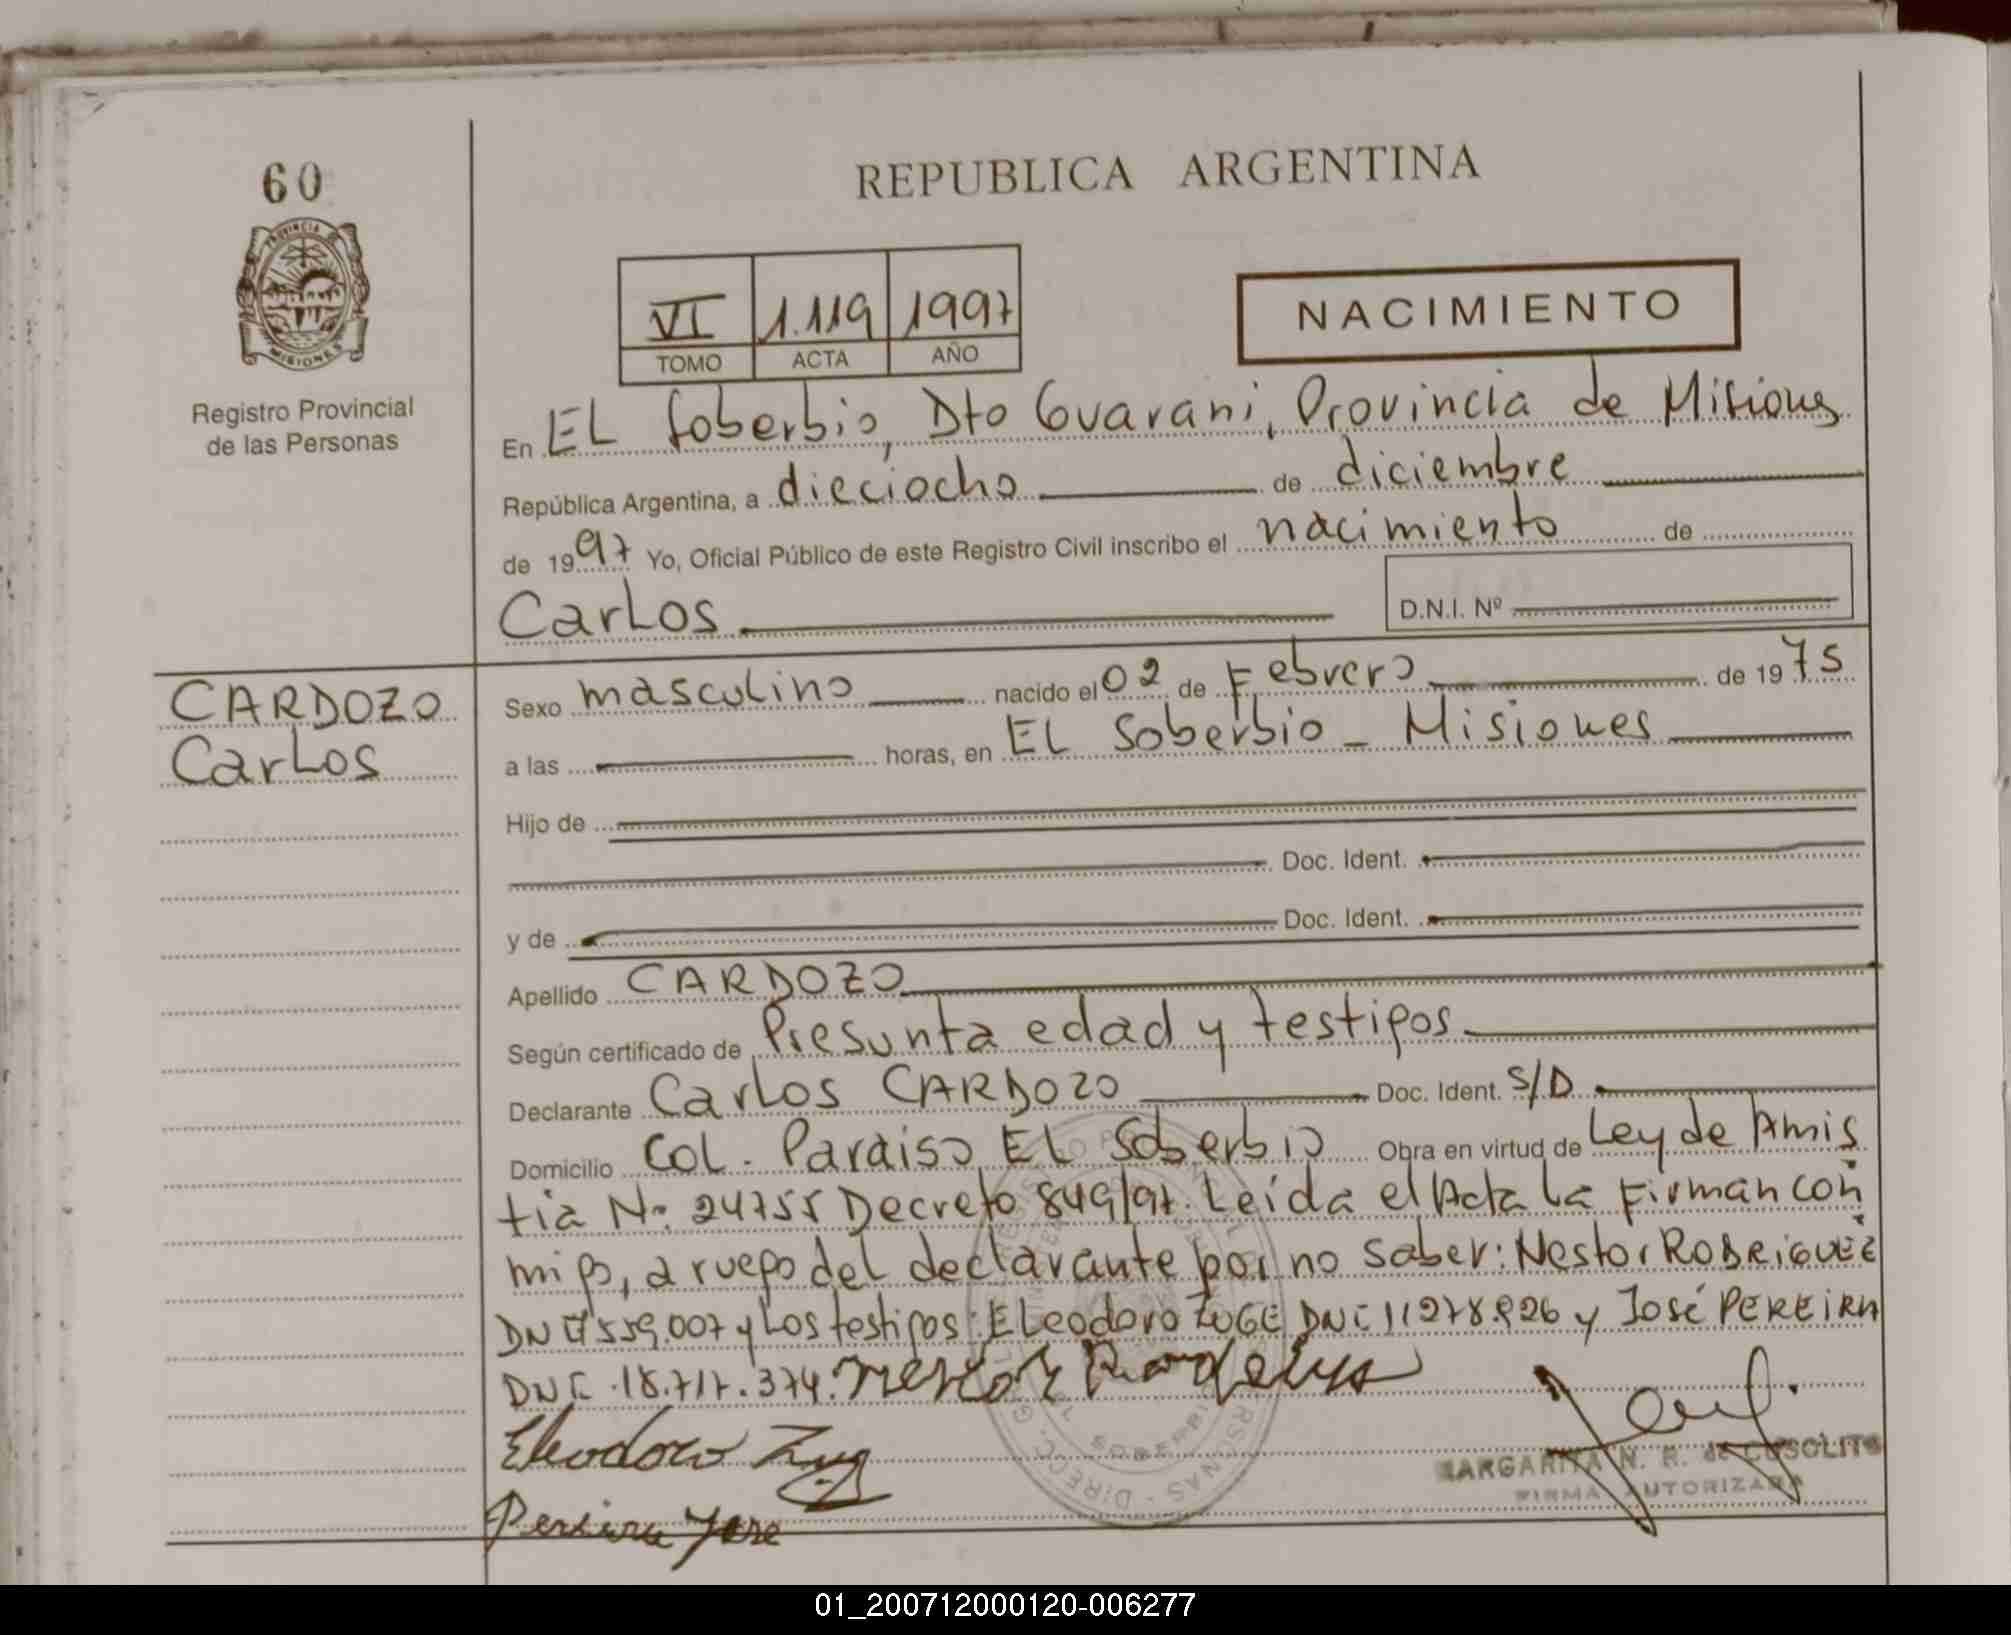 60
REPUBLICA ARGENTINA
PROVINCIA DE
MISIONES
Registro Provincial
de las Personas
VI 1.119 1997
TOMO ACTA AÑO
NACIMIENTO
En EL Soberbio, Dto Guarani, Provincia de Misiones
República Argentina, a dieciocho de diciembre
de 1997 Yo, Oficial Público de este Registro Civil inscribo el nacimiento de
Carlos D.N.I. Nº
CARDOZO
Carlos
Sexo masculino nacido el 02 de Febrero de 1975
a las horas, en EL Soberbio - Misiones
Hijo de
Doc. Ident.
y de Doc. Ident.
Apellido CARDOZO
Según certificado de Presunta edad y testigos
Declarante Carlos CARDOZO Doc. Ident. S/D
Domicilio Col. Paraiso EL Soberbio Obra en virtud de Ley de Amis
tia Nº 24755 Decreto 849/97. Leída el Acta la Firman con
migo, a ruego del declarante por no saber: Nestor RODRIGUEZ
y Los testigos: Eleodoro ZUGE DNI y José PEREIRA
DNI 18.717.374. Nestor
Eleodoro Zug
Pereira Jose
MARGARITA N. R. de CUSOLITO
FIRMA AUTORIZADA
01_200712000120-006277